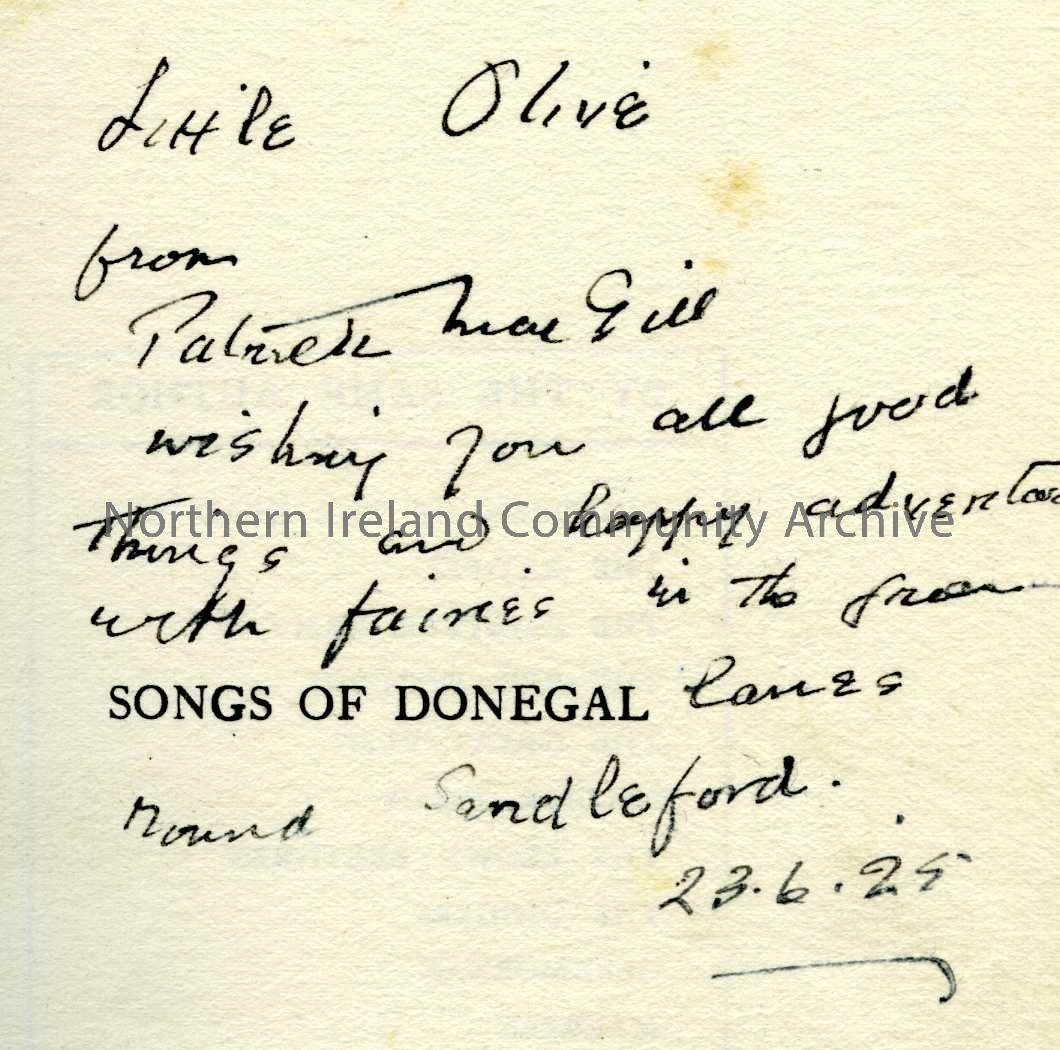 Little Olive
from
Patrick MacGill
wishing you all good
things and happy
Northern Ireland Community Archive
with fairies in the green
SONGS OF DONEGAL lanes
round Sandleford.
23.6.25